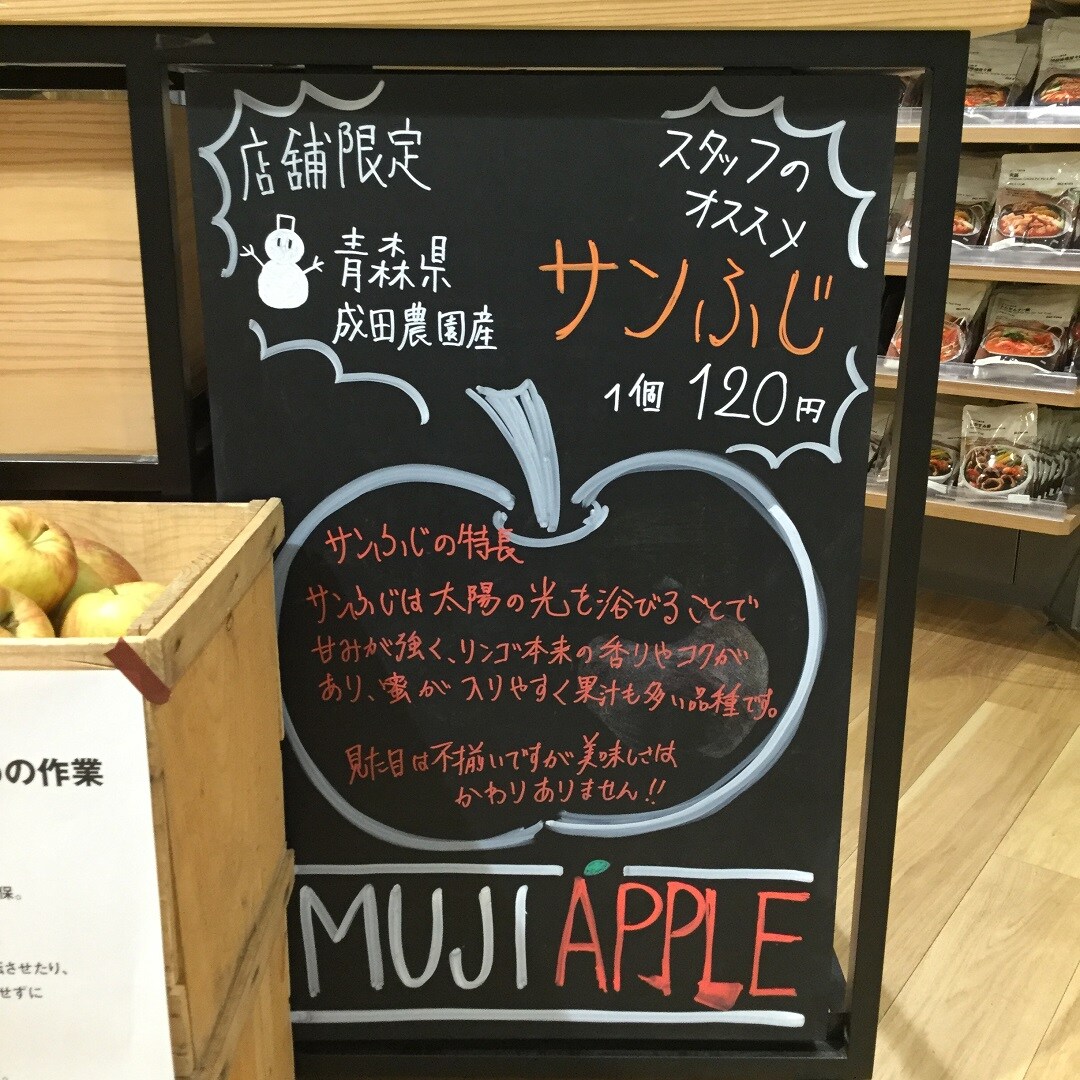 店舗限定
青森県
成田農園産
スタッフの
オススメ
サンふじ
1個 120円
サンふじの特長
サンふじは太陽の光を浴びることで
甘みが強く、リンゴ本来の香りやコクが
あり、蜜が入りやすく果汁も多い品種です。
見た目は不揃いですが美味しさは
かわりありません!!
MUJI APPLE
の作業
保。
させたり、
せずに